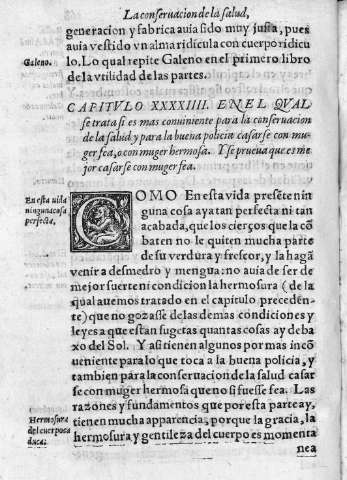 La conseruacion de la salud,
generacion y fabrica auia sido muy justa, pues
auia vestido vn alma ridicula con cuerpo ridicu
lo. Lo qual repite Galeno en el primero libro
de la vtilidad de las partes.
Galeno.
CAPITVLO XXXXIIII. EN EL QVAL
se trata si es mas conuiniente para la conseruacion
de la salud y para la buena policia casarse con mu-
ger fea, o con muger hermosa. Y se prueua que es me
jor casarse con muger fea.
En esta uida
ninguna cosa
perfecta.
COMO En esta vida presẽte nin
guna cosa aya tan perfecta ni tan
acabada, que los cierços que la cõ
baten no le quiten mucha parte
de su verdura y frescor, y la hagã
venir a desmedro y mengua: no auia de ser de
mejor suerte ni condicion la hermosura (de la
qual auemos tratado en el capitulo preceden-
te) que no gozasse de las demas condiciones y
leyes a que estan sugetas quantas cosas ay deba
xo del Sol. Y asi tienen algunos por mas incõ
ueniente para lo que toca a la buena policia, y
tambien para la conseruacion de la salud casar
se con muger hermosa que no si fuesse fea. Las
razones y fundamentos que por esta parte ay,
tienen mucha apparencia, porque la gracia, la
hermosura y gentileza del cuerpo es momenta
nea
Hermosura
del cuerpo ca
duca: